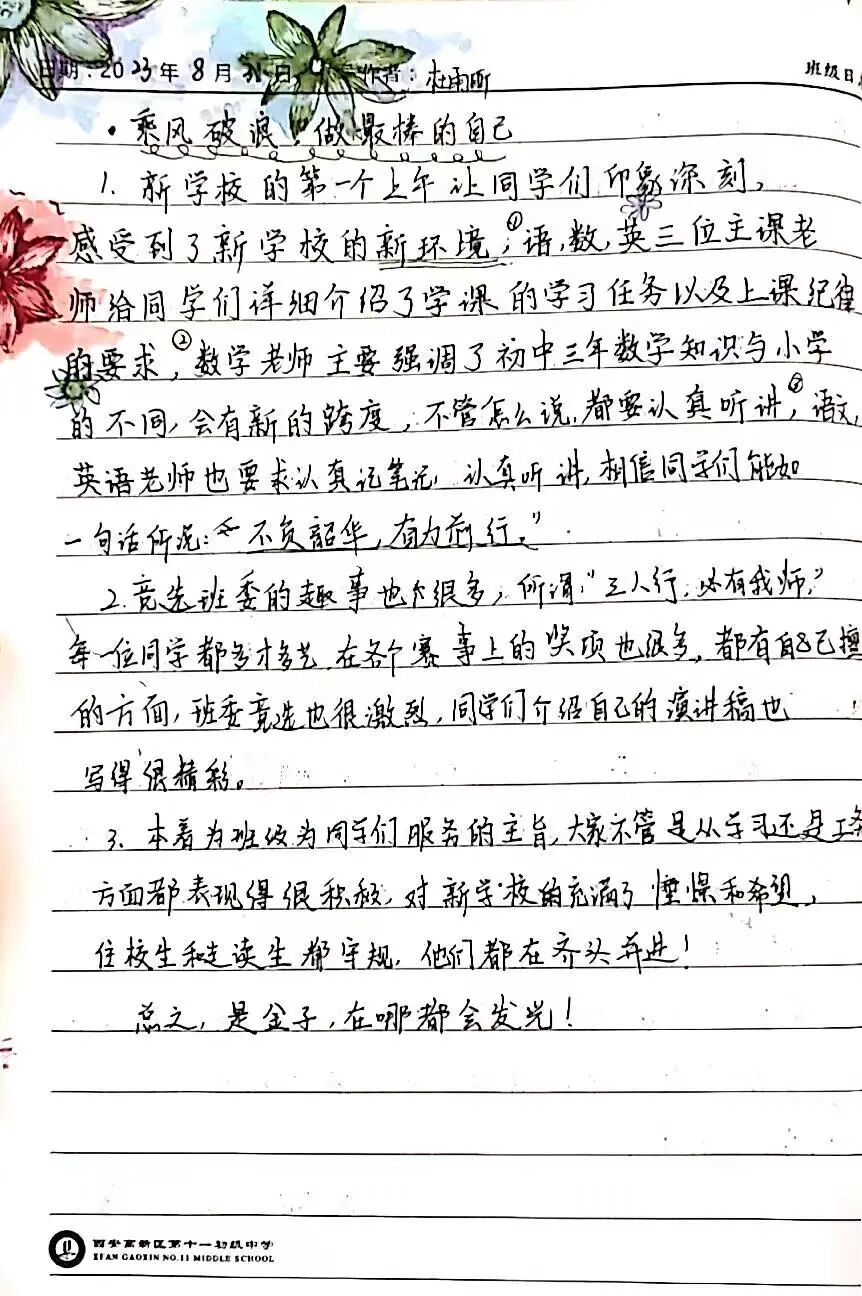 日期:2023年8月31日 作者:杜雨昕 班级日
·乘风破浪,做最棒的自己
1. 新学校的第一个上午让同学们印象深刻,
感受到了新学校的新环境,①语,数,英三位主课老
师给同学们详细介绍了学课的学习任务以及上课纪律
的要求,②数学老师主要强调了初中三年数学知识与小学
的不同,会有新的跨度,不管怎么说,都要认真听讲,③语文,
英语老师也要求认真记笔记,认真听讲,相信同学们能如
一句话所说:“不负韶华,有为前行。”
2.竞选班委的趣事也很多,所谓,“三人行,必有我师,”
每一位同学都多才多艺,在各个赛事上的奖项也很多,都有自己擅
的方面,班委竞选也很激烈,同学们介绍自己的演讲稿也
写得很精彩。
3. 本着为班级为同学们服务的主旨,大家不管是从学习还是工务
方面都表现得很积极,对新学校的充满了憧憬和希望,
住校生和走读生都守规,他们都在齐头并进!
总之,是金子,在哪都会发光!
西安高新区第十一初级中学
XI'AN GAOXIN NO.11 MIDDLE SCHOOL